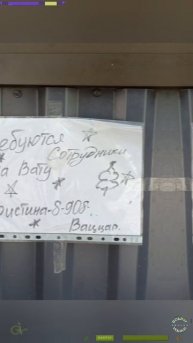 ебуются
Сотрудники
а Вату
ристина-8-908
Ватцап.